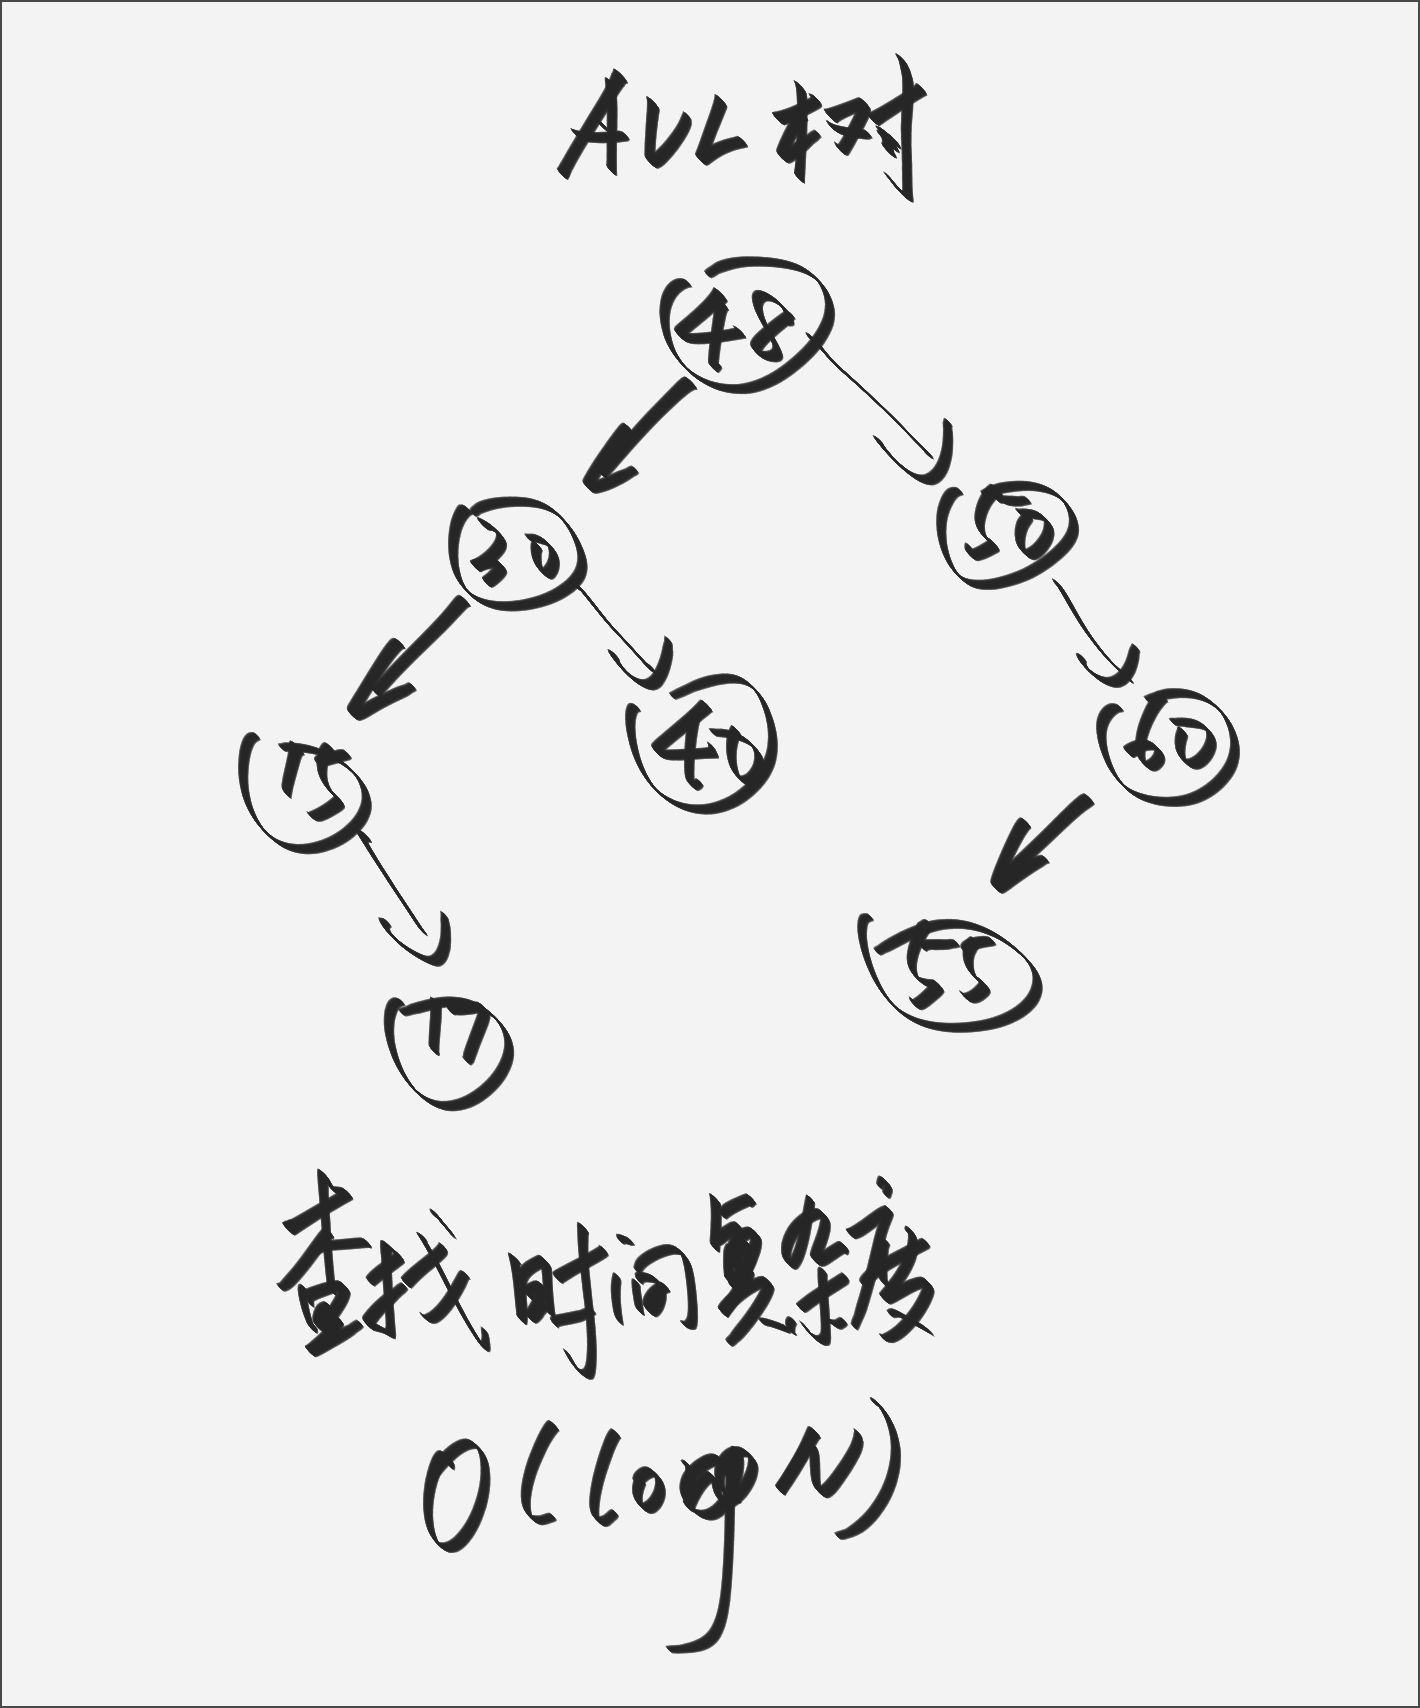 AVL树
48
30
50
15
40
60
17
55
查找时间复杂度
O(logN)